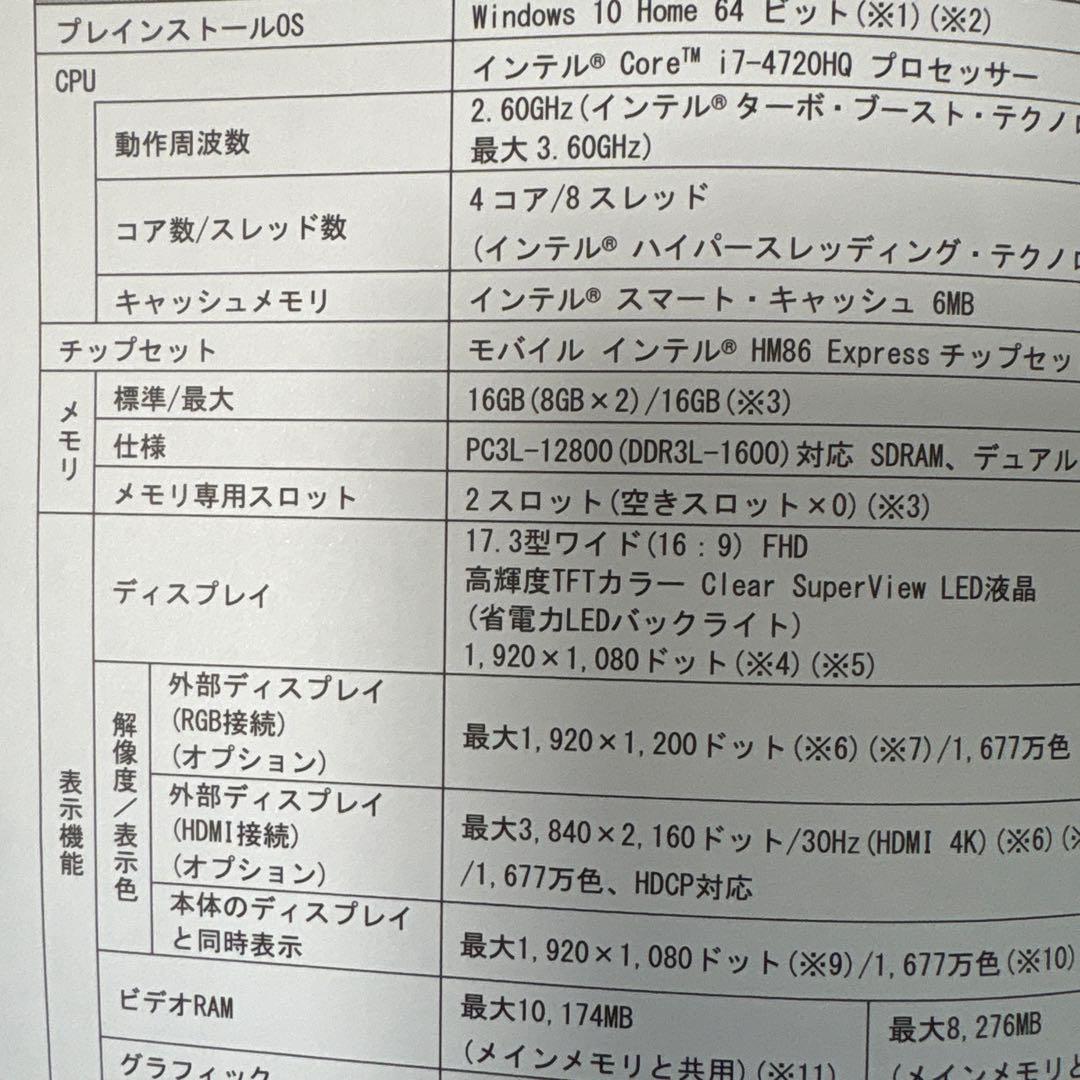 プレインストールOS
Windows 10 Home 64 ビット(※1)(※2)
CPU
インテル® Core™ i7-4720HQ プロセッサー
動作周波数
2.60GHz(インテル®ターボ・ブースト・テクノ
最大 3.60GHz)
コア数/スレッド数
4 コア/8 スレッド
(インテル® ハイパースレッディング・テクノ
キャッシュメモリ
インテル® スマート・キャッシュ 6MB
チップセット
モバイル インテル® HM86 Express チップセッ
メモリ
標準/最大
16GB(8GB×2)/16GB(※3)
仕様
PC3L-12800(DDR3L-1600)対応 SDRAM、デュアル
メモリ専用スロット
2 スロット(空きスロット×0)(※3)
表示機能
ディスプレイ
17.3型ワイド(16：9) FHD
高輝度TFTカラー Clear SuperView LED液晶
(省電力LEDバックライト)
1,920×1,080ドット(※4)(※5)
解像度／表示色
外部ディスプレイ
(RGB接続)
(オプション)
最大1,920×1,200ドット(※6)(※7)/1,677万色
外部ディスプレイ
(HDMI接続)
(オプション)
最大3,840×2,160ドット/30Hz(HDMI 4K)(※6)(※
/1,677万色、HDCP対応
本体のディスプレイ
と同時表示
最大1,920×1,080ドット(※9)/1,677万色(※10)
ビデオRAM
最大10,174MB
(メインメモリと共用)(※11)
最大8,276MB
(メインメモリと
グラフィック